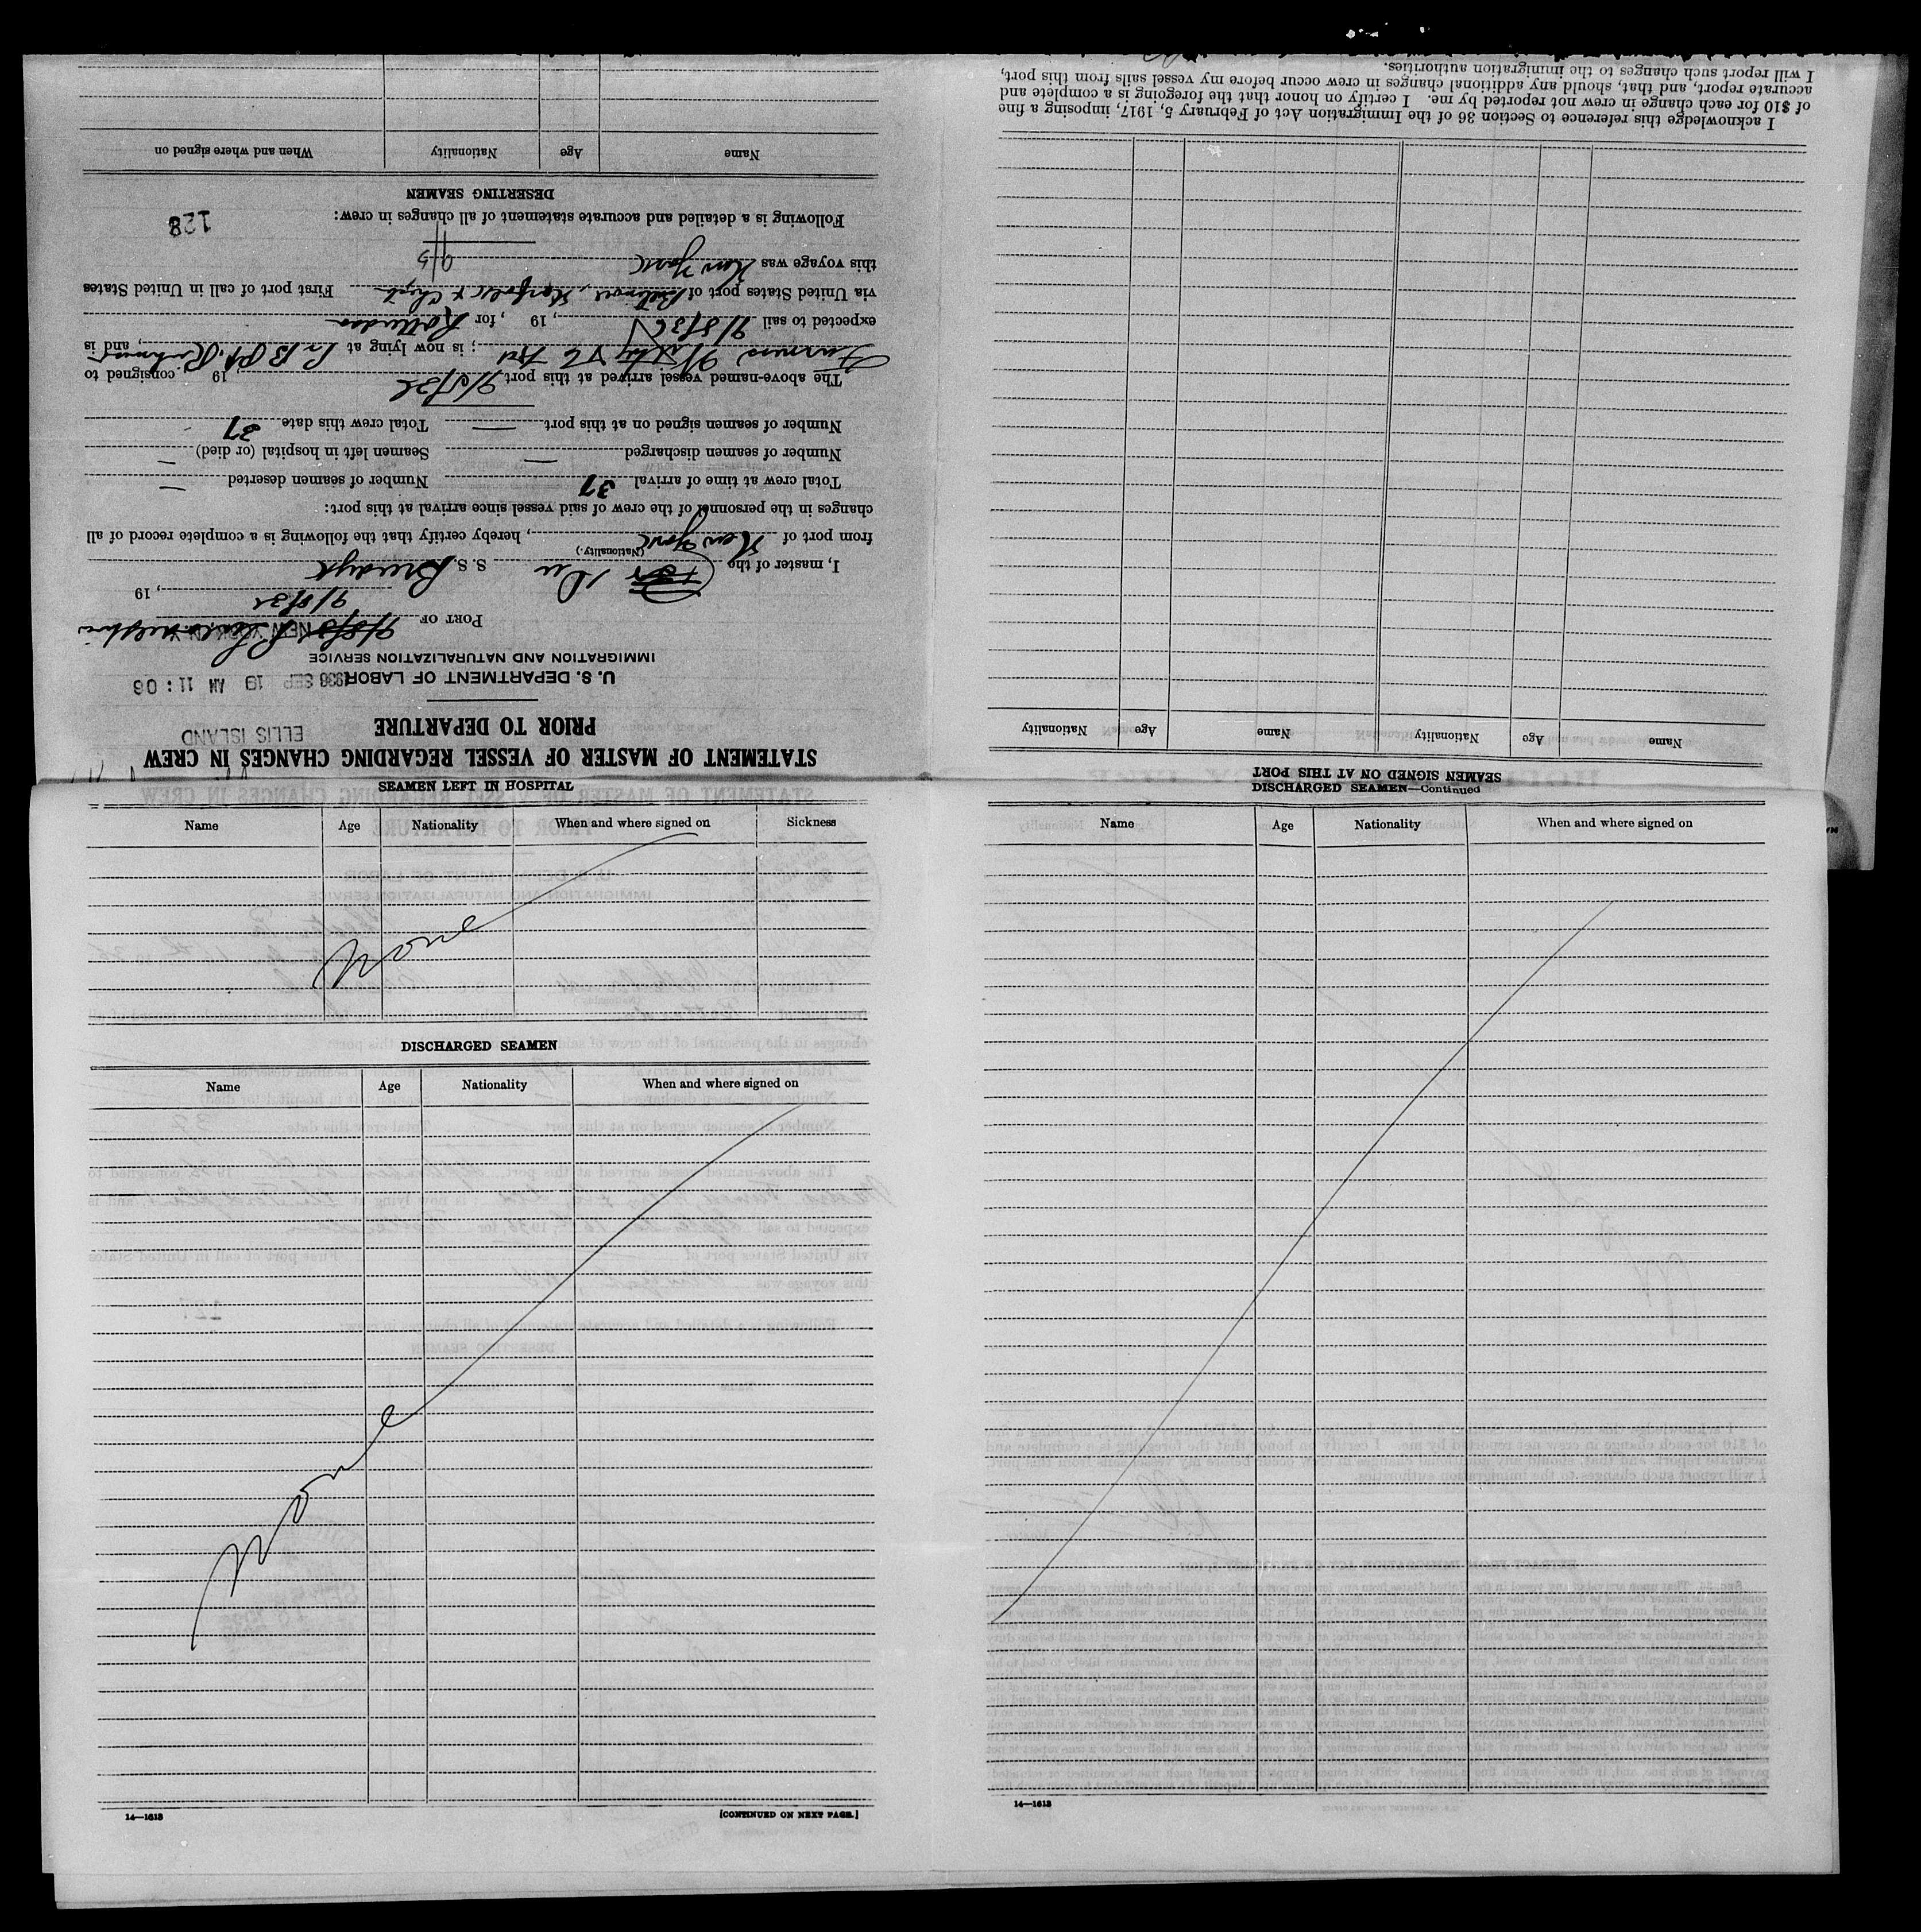 STATEMENT OF MASTER OF VESSEL REGARDING CHANGES IN CREW
PRIOR TO DEPARTURE
ELLIS ISLAND
U. S. DEPARTMENT OF LABOR
1936 SEP 19 AM 11:06
IMMIGRATION AND NATURALIZATION SERVICE
PORT OF NEW YORK N.Y.
, 19
I, master of the Du S. S. Breedyk
(Nationality.)
from port of New York, hereby certify that the following is a complete record of all
changes in the personnel of the crew of said vessel since arrival at this port:
Total crew at time of arrival 37 Number of seamen deserted —
Number of seamen discharged — Seamen left in hospital (or died) —
Number of seamen signed on at this port — Total crew this date 37
The above-named vessel arrived at this port 19 , consigned to
Furness Withy & Co ; is now lying at , and is
expected to sail , 19 , for Rotterdam
via United States port of Baltimore, Norfolk & First port of call in United States
this voyage was New York
Following is a detailed and accurate statement of all changes in crew:
128
DESERTING SEAMEN
Name Age Nationality When and where signed on
SEAMEN SIGNED ON AT THIS PORT
Name Age Nationality Name Age Nationality
I acknowledge this reference to Section 36 of the Immigration Act of February 5, 1917, imposing a fine
of $10 for each change in crew not reported by me. I certify on honor that the foregoing is a complete and
accurate report, and that, should any additional changes in crew occur before my vessel sails from this port,
I will report such changes to the immigration authorities.
SEAMEN LEFT IN HOSPITAL
Name Age Nationality When and where signed on Sickness
None
DISCHARGED SEAMEN
Name Age Nationality When and where signed on
None
14—1613 [CONTINUED ON NEXT PAGE.]
DISCHARGED SEAMEN—Continued
Name Age Nationality When and where signed on
14—1613